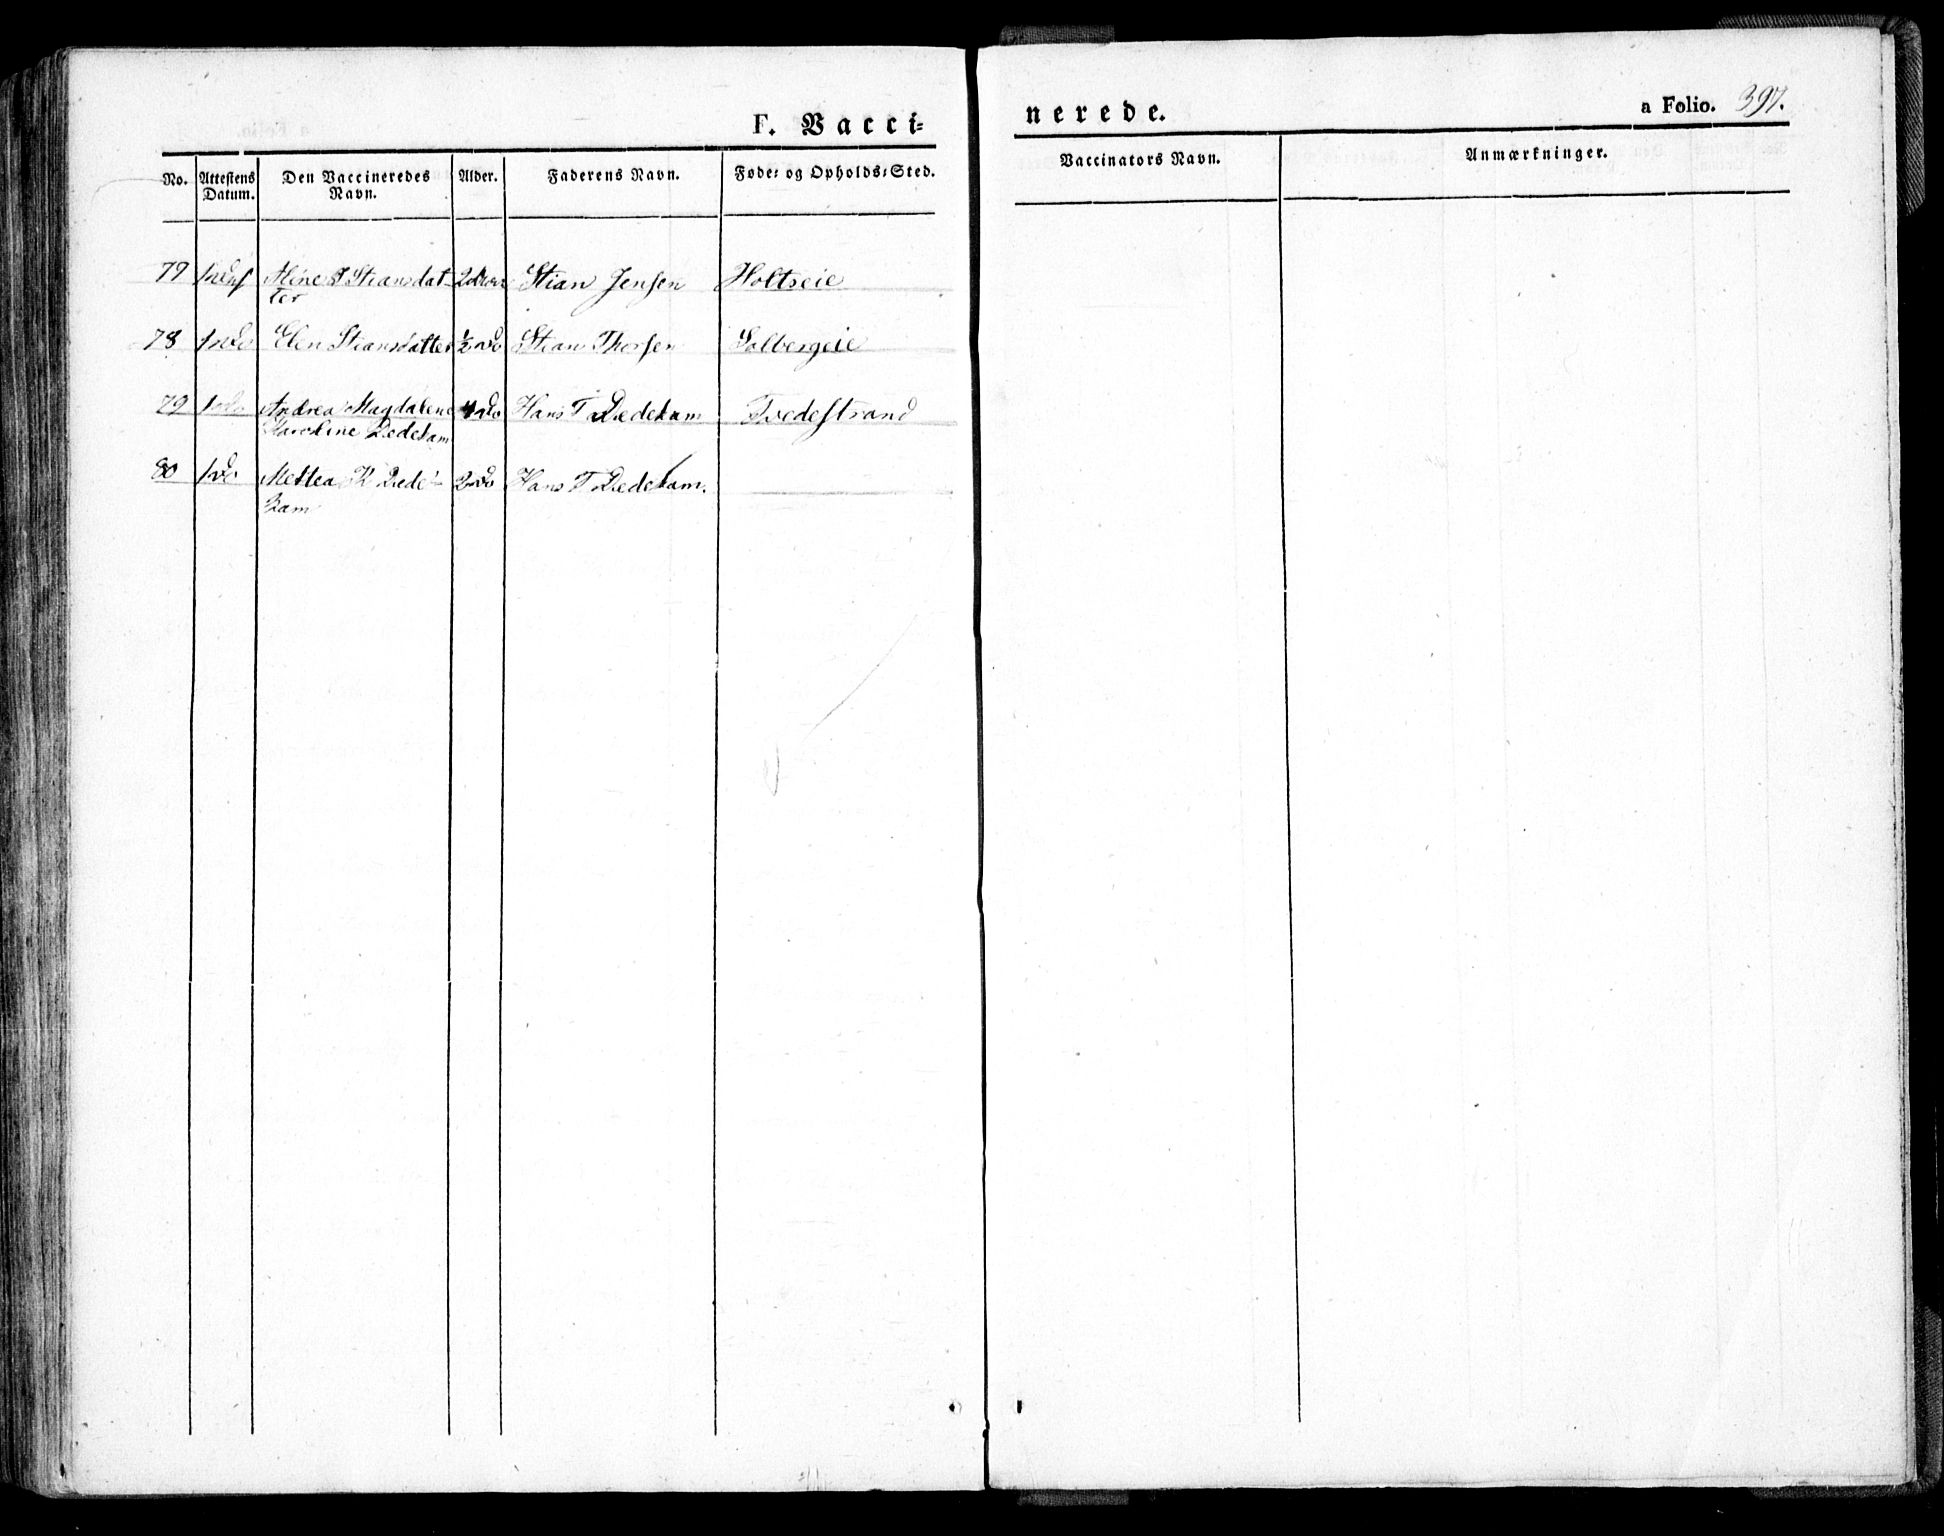 F. Vacci=
nerede.
a Folio. 397.
No. Attestens Datum. Den Vaccineredes Navn. Alder. Faderens Navn. Føde= og Opholds=Sted.
Vaccinators Navn. Anmærkninger.
77 Aline J Stiansdat- Stian Jensen Holtseie
ter
78 Elen Stiansdatter ½ do Stian Thorsen Solbergeie
79 Andrea Magdalene 4 do Hans T Dedekam Tvedestrand
Karoline Dedekam
80 Mettea K Dede- 2 do Hans T Dedekam.
kam